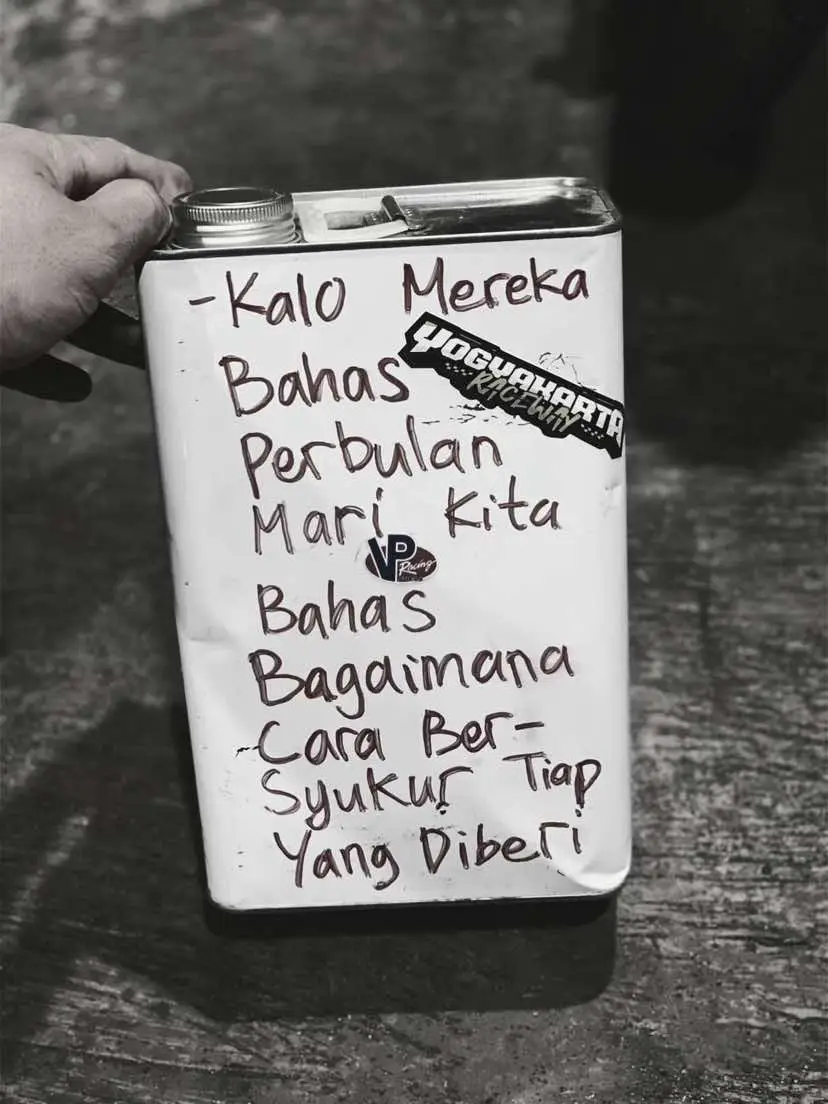 -Kalo Mereka
Bahas
YOGYAKARTA
RACEWAY
Perbulan
Mari Kita
VP
Racing
Bahas
Bagaimana
Cara Ber-
Syukur Tiap
Yang Diberi